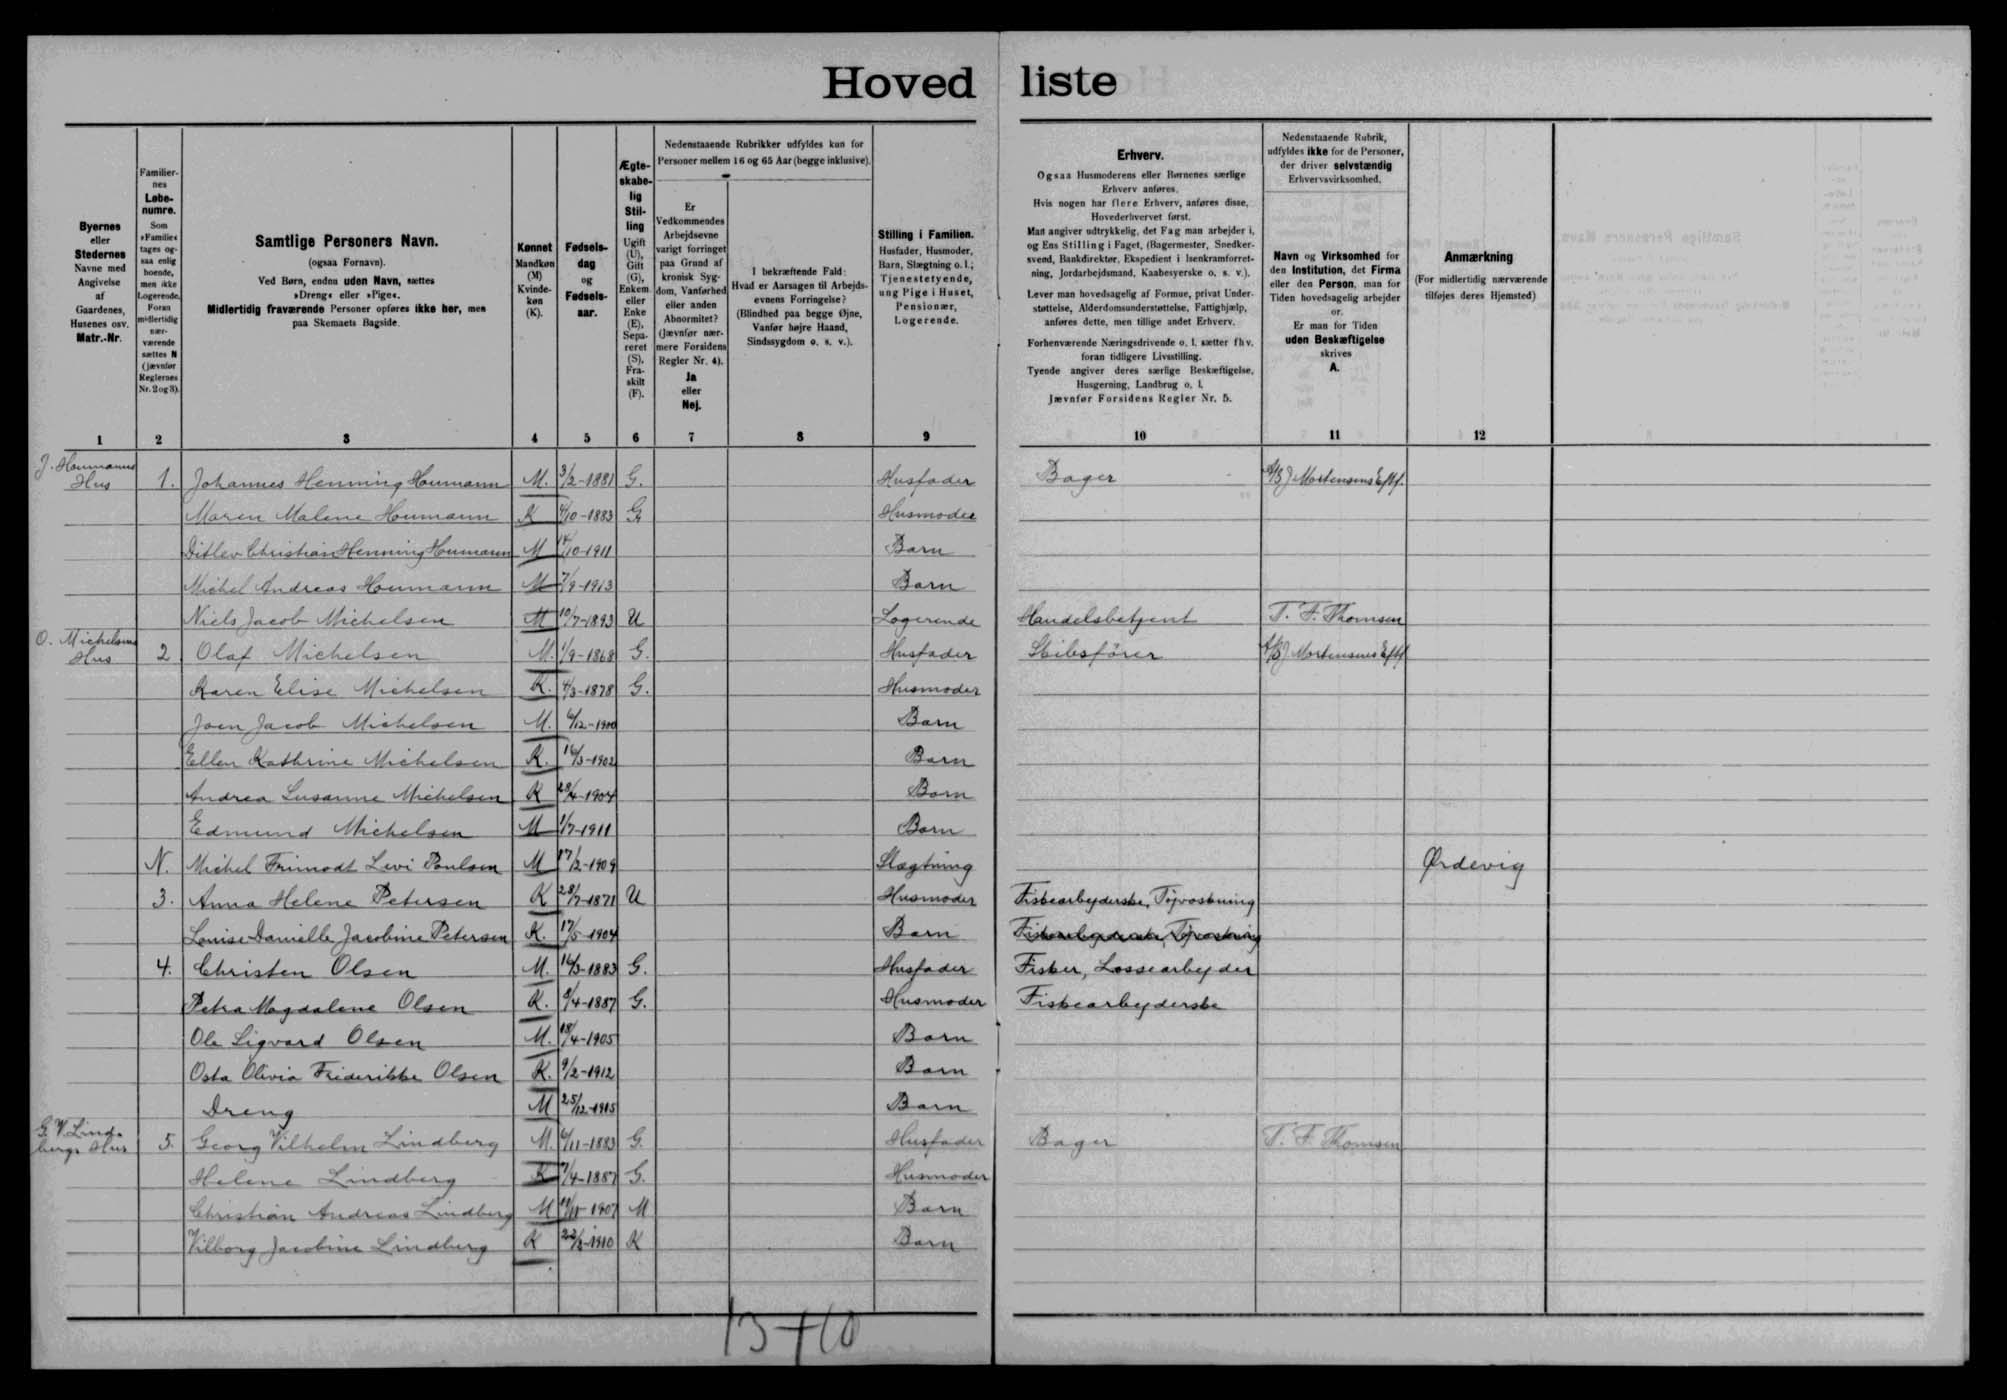 Hoved liste
Byernes
eller
Stedernes
Navne med
Angivelse
af
Gaardenes,
Husenes osv.
Matr.-Nr.
Familier-
nes
Løbe-
numre.
Som
»Familie«
tages og-
saa enlig
boende,
men ikke
Logerende.
Foran
midlertidig
nær-
værende
sættes N
(jævnfør
Reglernes
Nr. 2 og 3).
Samtlige Personers Navn.
(ogsaa Fornavn).
Ved Børn, endnu uden Navn, sættes
»Dreng« eller »Pige«.
Midlertidig fraværende Personer opføres ikke her, men
paa Skemaets Bagside.
Kønnet
Mandkøn
(M)
Kvinde-
køn
(K).
Fødsels-
dag
og
Fødsels-
aar.
Ægte-
skabe-
lig
Stil-
ling
Ugift
(U),
Gift
(G),
Enkem.
eller
Enke
(E),
Sepa-
reret
(S),
Fra-
skilt
(F).
Nedenstaaende Rubrikker udfyldes kun for
Personer mellem 16 og 65 Aar (begge inklusive).
Er
Vedkommendes
Arbejdsevne
varigt forringet
paa Grund af
kronisk Syg-
dom, Vanførhed
eller anden
Abnormitet?
(Jævnfør nær-
mere Forsidens
Regler Nr. 4).
Ja
eller
Nej.
I bekræftende Fald:
Hvad er Aarsagen til Arbejds-
evnens Forringelse?
(Blindhed paa begge Øjne,
Vanfør højre Haand,
Sindssygdom o. s. v.).
Stilling i Familien.
Husfader, Husmoder,
Barn, Slægtning o. l.;
Tjenestetyende,
ung Pige i Huset,
Pensionær,
Logerende.
Erhverv.
Ogsaa Husmoderens eller Børnenes særlige
Erhverv anføres.
Hvis nogen har flere Erhverv, anføres disse,
Hovederhvervet først.
Man angiver udtrykkelig, det Fag man arbejder i,
og Ens Stilling i Faget, (Bagermester, Snedker-
svend, Bankdirektør, Ekspedient i Isenkramforret-
ning, Jordarbejdsmand, Kaabesyerske o. s. v.).
Lever man hovedsagelig af Formue, privat Under-
støttelse, Alderdomsunderstøttelse, Fattighjælp,
anføres dette, men tillige andet Erhverv.
Forhenværende Næringsdrivende o. l. sætter fhv.
foran tidligere Livsstilling.
Tyende angiver deres særlige Beskæftigelse,
Husgerning, Landbrug o. l.
Jævnfør Forsidens Regler Nr. 5.
Nedenstaaende Rubrik,
udfyldes ikke for de Personer,
der driver selvstændig
Erhvervsvirksomhed.
Navn og Virksomhed for
den Institution, det Firma
eller den Person, man for
Tiden hovedsagelig arbejder
for.
Er man for Tiden
uden Beskæftigelse
skrives
A.
Anmærkning
(For midlertidig nærværende
tilføjes deres Hjemsted)
1 2 3 4 5 6 7 8 9 10 11 12
J. Houmanns
Hus 1. Johannes Henning Houmann M. 3/2-1881 G. Husfader Bager A/S J Mortensens Eftf.
Maren Malene Houmann K 4/10-1883 G Husmoder
Ditlev Christian Henning Houmann M 14/10-1911 Barn
Michel Andreas Houmann M 7/9-1913 Barn
Niels Jacob Michelsen M 10/7-1893 U Logerende Handelsbetjent T. F. Thomsen
O. Michelsens
Hus 2 Olaf Michelsen M. 1/9-1868 G. Husfader Skibsfører A/S J Mortensens Eftf
Karen Elise Michelsen K. 4/3-1878 G. Husmoder
Joen Jacob Michelsen M. 6/12-1900 Barn
Ellen Kathrine Michelsen K. 16/3-1902 Barn
Andrea Susanne Michelsen K 28/4-1904 Barn
Edmund Michelsen M 1/7-1911 Barn
N. Michel Frimodt Levi Poulsen M 17/2-1909 Slægtning Ørdevig
3. Anna Helene Petersen K 28/7-1871 U Husmoder Fiskearbejderske, Tøjvaskning
Louise Danielle Jacobine Petersen K. 17/5-1904 Barn Fiskearbejderske, Tøjvaskning
4. Christen Olsen M. 16/3-1883 G. Husfader Fisker, Lossearbejder
Petra Magdalene Olsen K. 9/4-1887 G. Husmoder Fiskearbejderske
Ole Sigvard Olsen M. 18/4-1905 Barn
Osta Olivia Friderikke Olsen K. 9/2-1912 Barn
Dreng M 25/12-1915 Barn
G. V. Lind-
bergs Hus 5. Georg Vilhelm Lindberg M. 6/11-1883 G. Husfader Bager T. F. Thomsen
Helene Lindberg K 7/4-1887 G. Husmoder
Christian Andreas Lindberg M 1907 M Barn
Vilborg Jacobine Lindberg K 22/3-1910 K Barn
13+10